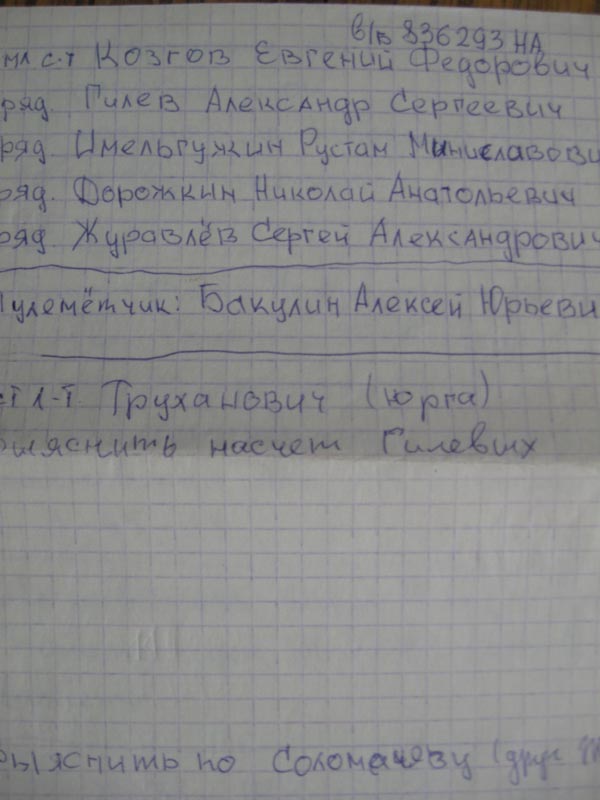 в/в 836293 НА
мл с.т Козгов Евгений Федорович
ряд. Гилев Александр Сергеевич
ряд. Имельгужин Рустам Миниславови
ряд. Дорожкин Николай Анатольевич
ряд. Журавлёв Сергей Александрович
Пулемётчик: Бакулин Алексей Юрьеви
ст л-т. Труханович (юрга)
выяснить насчет Гилевых
выяснить по Соломачеву (друг